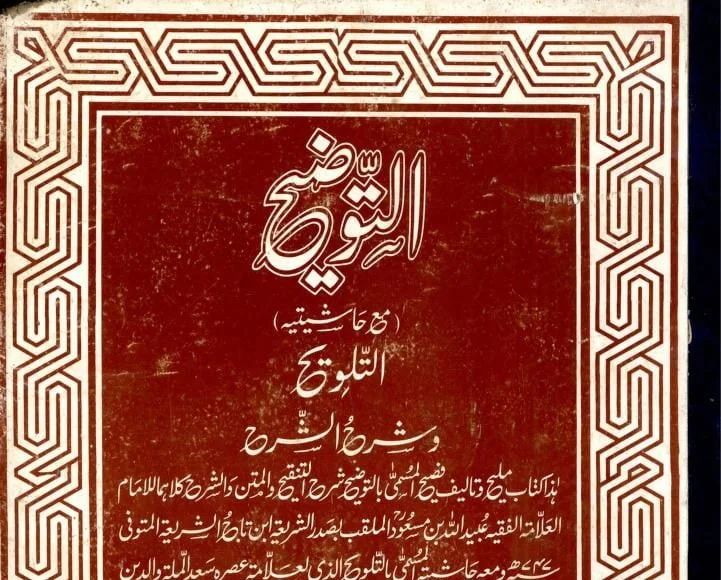 التّوضیح
(مع حاشیتیه)
التّلویح
وشرحُ الشّرح
هٰذا کتاب ملیح وتالیف فصیح المسمّی بالتوضیح شرح التنقیح والمتن والشرح کلاهما للامام
العلامة الفقیه عبید الله بن مسعُود الملقب بصدر الشریعة ابن تاجُ الشریعة المتوفی
۷۴۷ھ ومعه حاشیتة المسمّی بالتلویح الذی لعلامة عصره سعد الملة والدین